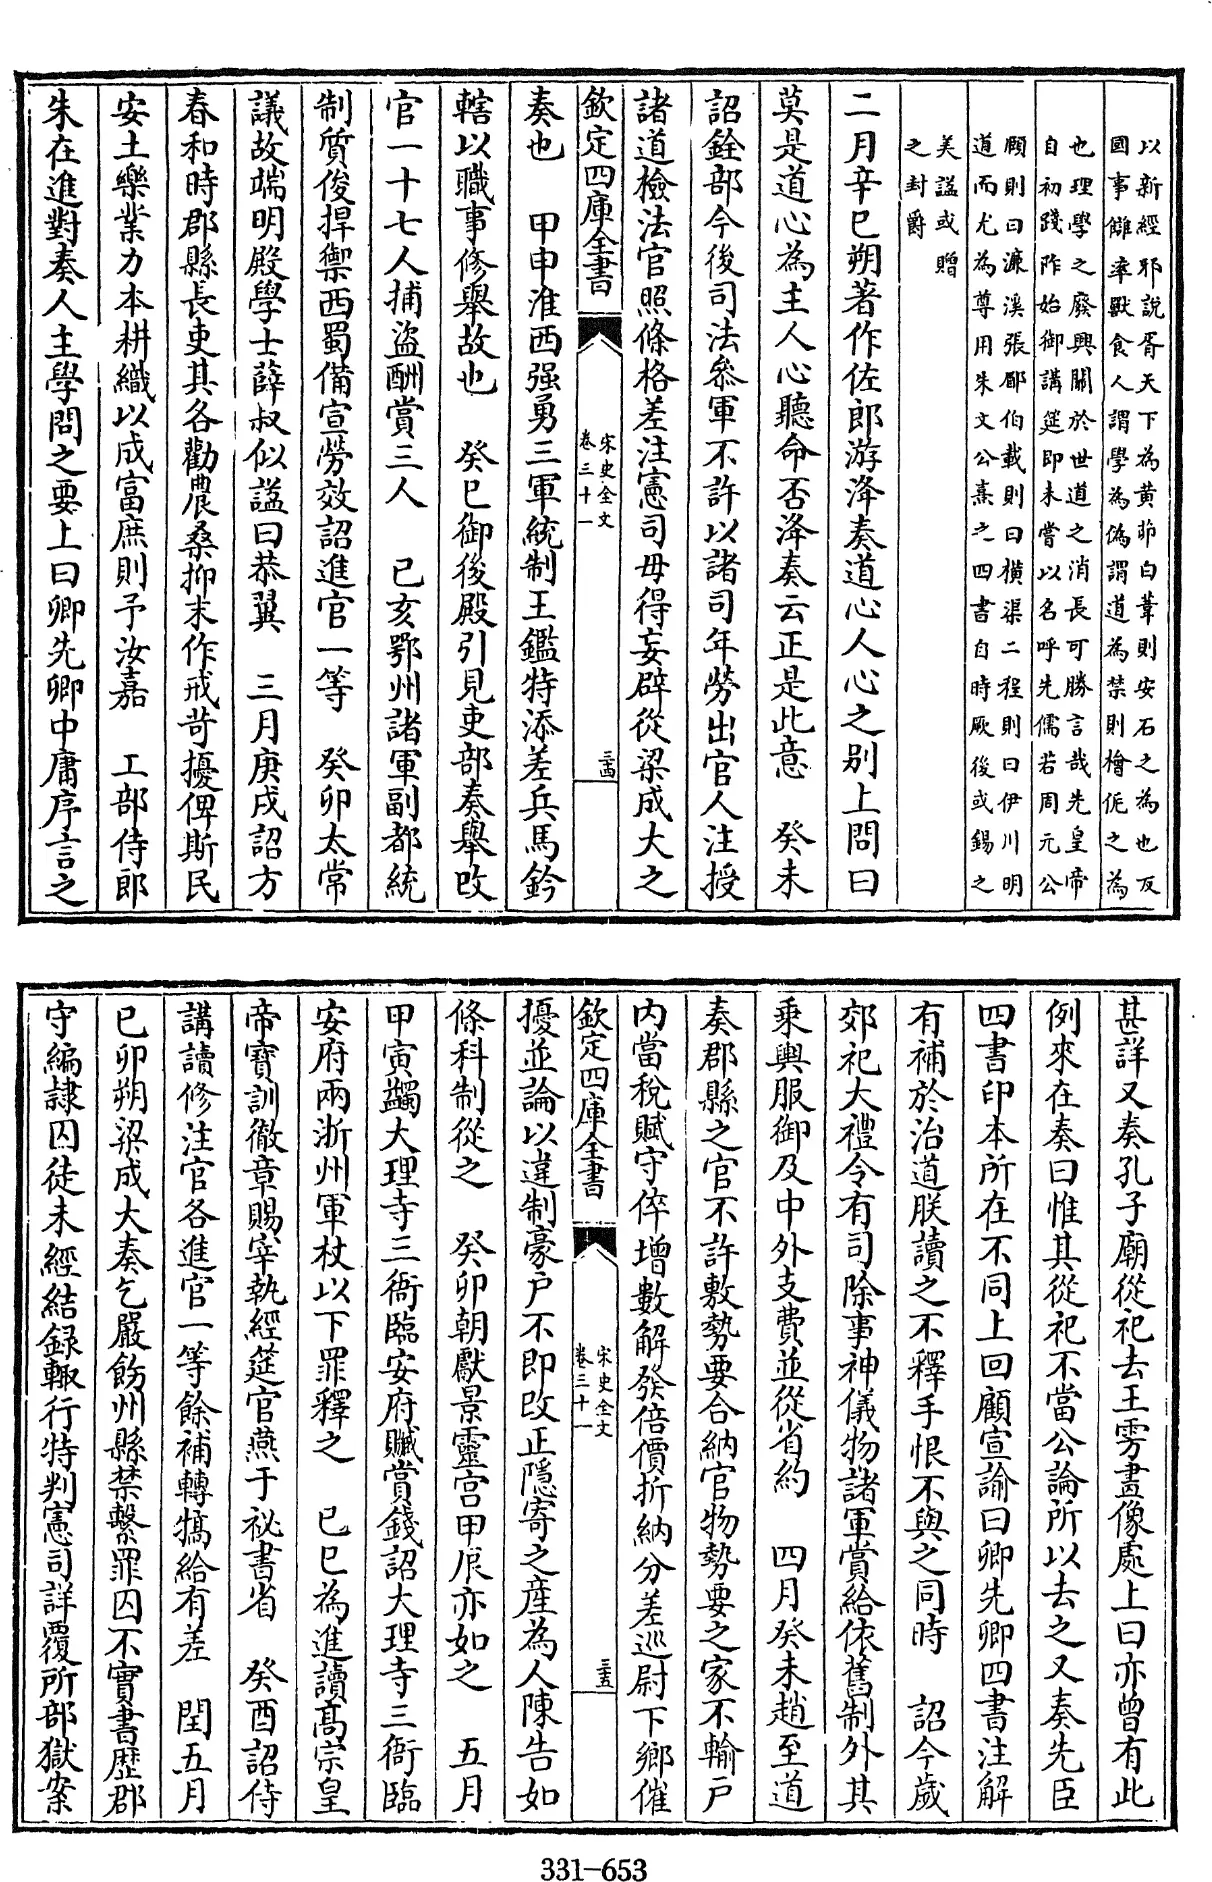 以新經邪說胥天下為黄茆白葦則安石之為也反
國事讎率獸食人謂學為偽謂道為禁則檜侂之為
也理學之廢興關於世道之消長可勝言哉先皇帝
自初踐阼始御講筵即未嘗以名呼先儒若周元公
頤則曰濂溪張郿伯載則曰橫渠二程則曰伊川明
道而尤為尊用朱文公熹之四書自時厥後或錫之
美諡或贈
之封爵
二月辛巳朔著作佐郎游洚奏道心人心之别上問曰
莫是道心為主人心聽命否洚奏云正是此意　癸未
詔銓部今後司法叅軍不許以諸司年勞出官人注授
諸道檢法官照條格差注憲司毋得妄辟從梁成大之
欽定四庫全書
宋史全文
卷三十一
三十四
奏也　甲申淮西强勇三軍統制王鑑特添差兵馬鈐
轄以職事修舉故也　癸巳御後殿引見吏部奏舉改
官一十七人捕盜酬賞三人　己亥鄂州諸軍副都統
制質俊捍禦西蜀備宣勞效詔進官一等　癸卯太常
議故端明殿學士薛叔似諡曰恭翼　三月庚戌詔方
春和時郡縣長吏其各勸農桑抑末作戒苛擾俾斯民
安土樂業力本耕織以成富庶則予汝嘉　工部侍郎
朱在進對奏人主學問之要上曰卿先卿中庸序言之
甚詳又奏孔子廟從祀去王雱畫像處上曰亦曾有此
例來在奏曰惟其從祀不當公論所以去之又奏先臣
四書印本所在不同上回顧宣諭曰卿先卿四書注解
有補於治道朕讀之不釋手恨不與之同時　詔今歲
郊祀大禮令有司除事神儀物諸軍賞給依舊制外其
乘輿服御及中外支費並從省約　四月癸未趙至道
奏郡縣之官不許敷勢要合納官物勢要之家不輸戶
内當税賦守倅增數解發倍價折納分差巡尉下鄉催
欽定四庫全書
宋史全文
卷三十一
三十五
擾並論以違制豪户不即改正隱寄之產為人陳告如
條科制從之　癸卯朝獻景靈宫甲辰亦如之　五月
甲寅蠲大理寺三衙臨安府贓賞錢詔大理寺三衙臨
安府兩浙州軍杖以下罪釋之　己巳為進讀髙宗皇
帝寶訓徹章賜宰執經筵官燕于祕書省　癸酉詔侍
講讀修注官各進官一等餘補轉犒給有差　閏五月
己卯朔梁成大奏乞嚴飭州縣禁繫罪囚不實書歷郡
守編隸囚徒未經結録輒行特判憲司詳覆所部獄案
331-653